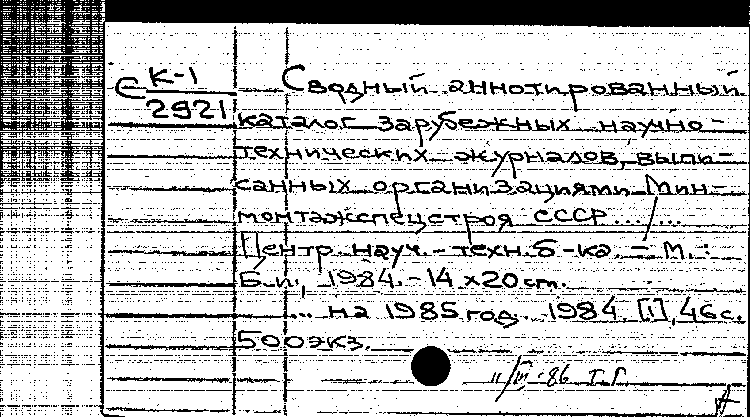 С К-1 Сводный аннотированный
2921 каталог зарубежных научно-
технических журналов, выпи-
санных организациями Мин-
монтажспецстроя СССР... / ...
Центр. науч.-техн. б-ка. - М. :
Б.и., 1984. - 14 x 20 cm.
... на 1985 год. 1984. [1], 46 с.
500 экз.
11/III-86 Т.Г.
А